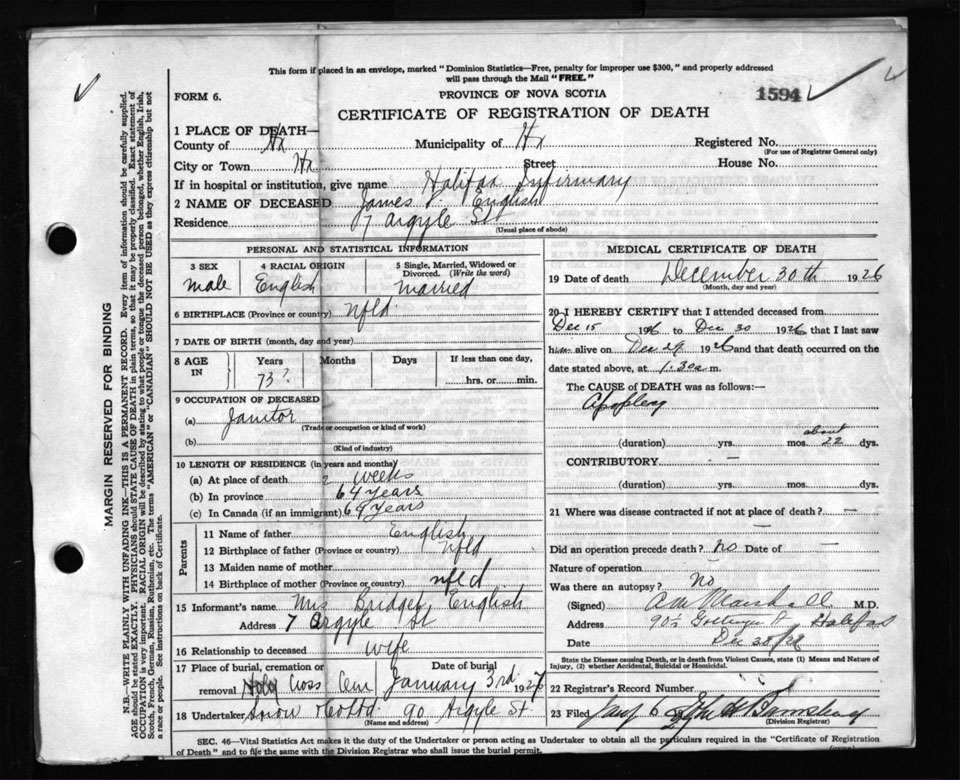 This form if placed in an envelope, marked "Dominion Statistics—Free, penalty for improper use $300," and properly addressed
will pass through the Mail "FREE."
FORM 6.
PROVINCE OF NOVA SCOTIA
1594
CERTIFICATE OF REGISTRATION OF DEATH
1 PLACE OF DEATH—
County of Hx Municipality of Hx Registered No.
(For use of Registrar General only)
City or Town Hx Street House No.
If in hospital or institution, give name Halifax Infirmary
2 NAME OF DECEASED James English
Residence 7 Argyle St
(Usual place of abode)
PERSONAL AND STATISTICAL INFORMATION
3 SEX 4 RACIAL ORIGIN 5 Single, Married, Widowed or
Divorced. (Write the word)
male English married
6 BIRTHPLACE (Province or country) nfld.
7 DATE OF BIRTH (month, day and year)
8 AGE IN Years Months Days If less than one day,
73? hrs. or min.
9 OCCUPATION OF DECEASED
(a) Janitor
(Trade or occupation or kind of work)
(b)
(Kind of industry)
10 LENGTH OF RESIDENCE (in years and months)
(a) At place of death 2 weeks
(b) In province 64 years
(c) In Canada (if an immigrant) 64 years
Parents
11 Name of father English
12 Birthplace of father (Province or country) nfld
13 Maiden name of mother
14 Birthplace of mother (Province or country) nfld
15 Informant's name Mrs Bridget English
Address 7 Argyle St
16 Relationship to deceased wife
17 Place of burial, cremation or Date of burial
removal Holy Cross Cem January 3rd 1927
18 Undertaker Snow & Co Ltd 90 Argyle St
MEDICAL CERTIFICATE OF DEATH
19 Date of death December 30th 1926
(Month, day and year)
20 I HEREBY CERTIFY that I attended deceased from
Dec 15 1926 to Dec 30 1926 that I last saw
him alive on Dec 29 1926 and that death occurred on
date stated above, at 1.30 a m.
The CAUSE of DEATH was as follows:—
Apoplexy
about
(duration) yrs. mos. 22 dys.
CONTRIBUTORY —
(duration) yrs. mos. dys.
21 Where was disease contracted if not at place of death? —
—
Did an operation precede death? no Date of —
Nature of operation —
Was there an autopsy? No
(Signed) Marshall M.D.
Address Gottingen St Halifax
Date Dec
State the Disease causing Death, or in death from Violent Causes, state (1) Means and Nature of
Injury, (2) whether Accidental, Suicidal or Homicidal.
22 Registrar's Record Number
23 Filed Jany 6
(Division Registrar)
SEC. 46—Vital Statistics Act makes it the duty of the Undertaker or person acting as Undertaker to obtain all the particulars required in the "Certificate of Registration
of Death" and to file the same with the Division Registrar who shall issue the burial permit.
MARGIN RESERVED FOR BINDING
N.B.—WRITE PLAINLY WITH UNFADING INK—THIS IS A PERMANENT RECORD. Every item of information should be carefully supplied.
AGE should be stated EXACTLY. PHYSICIANS should STATE CAUSE OF DEATH in plain terms, so that it may be properly classified. Exact statement of
OCCUPATION is very important. RACIAL ORIGIN will be described by stating to what people or tongue the deceased person belonged, whether English, Irish,
Scotch, French, German, Russian, Ruthenian, etc. The terms "AMERICAN" or "CANADIAN" SHOULD NOT BE USED as they express citizenship but not
a race or people. See instructions on back of Certificate.